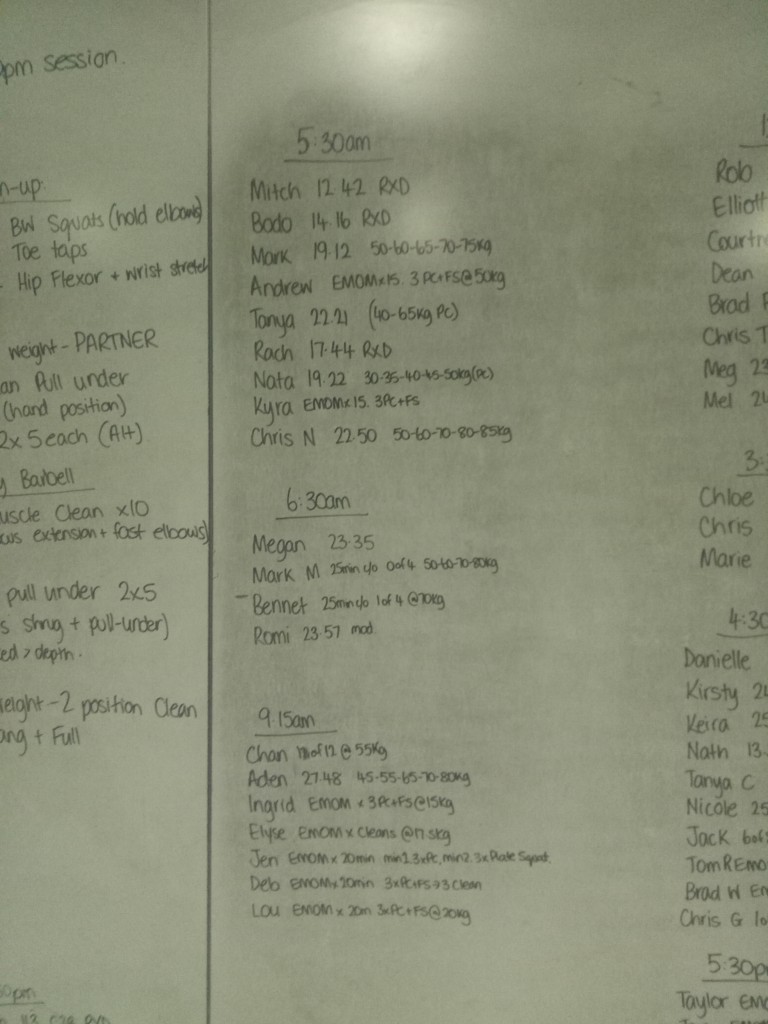 pm session.
n-up.
BW Squats (hold elbows)
Toe taps
- Hip Flexor + wrist stretch
weight - PARTNER
an Pull under
(hand position)
2x 5 each (Alt)
y Barbell
uscle Clean x10
cus extension + fast elbows)
pull under 2x5
s shrug + pull-under)
ed > depth.
eight - 2 position Clean
ang + Full
0pm
5:30am
Mitch 12.42 RXD
Bodo 14.16 RXD
Mark 19.12 50-60-65-70-75kg
Andrew EMOM x 15. 3 PC+FS @ 50kg
Tanya 22.21 (40-65kg PC)
Rach 17.44 RXD
Nata 19.22 30-35-40-45-50kg (PC)
Kyra EMOM x 15. 3PC+FS
Chris N 22.50 50-60-70-80-85kg
6:30am
Megan 23.35
Mark M 25min c/o 0 of 4 50-60-70-80kg
- Bennet 25min c/o 1 of 4 @ 70kg
Romi 23.57 mod
9.15am
Chan of 12 @ 55kg
Aden 27.48 45-55-65-70-80kg
Ingrid EMOM x 3PC+FS@15kg
Elyse EMOM x Cleans @17.5kg
Jen EMOM x 20min min1. 3xPC, min2. 3x Plate Squat.
Deb EMOM x 20min 3xPC+FS → 3 Clean
Lou EMOM x 20m 3xPC+FS@20kg
Rob
Elliott
Courtn
Dean
Brad
Chris T
Meg 23
Mel 24
3:
Chloe
Chris
Marie
4:30
Danielle
Kirsty 24
Keira 25
Nath 13.
Tanya C
Nicole 25
Jack 6of
Tom R EMO
Brad W EM
Chris G 10
5:30p
Taylor EMO